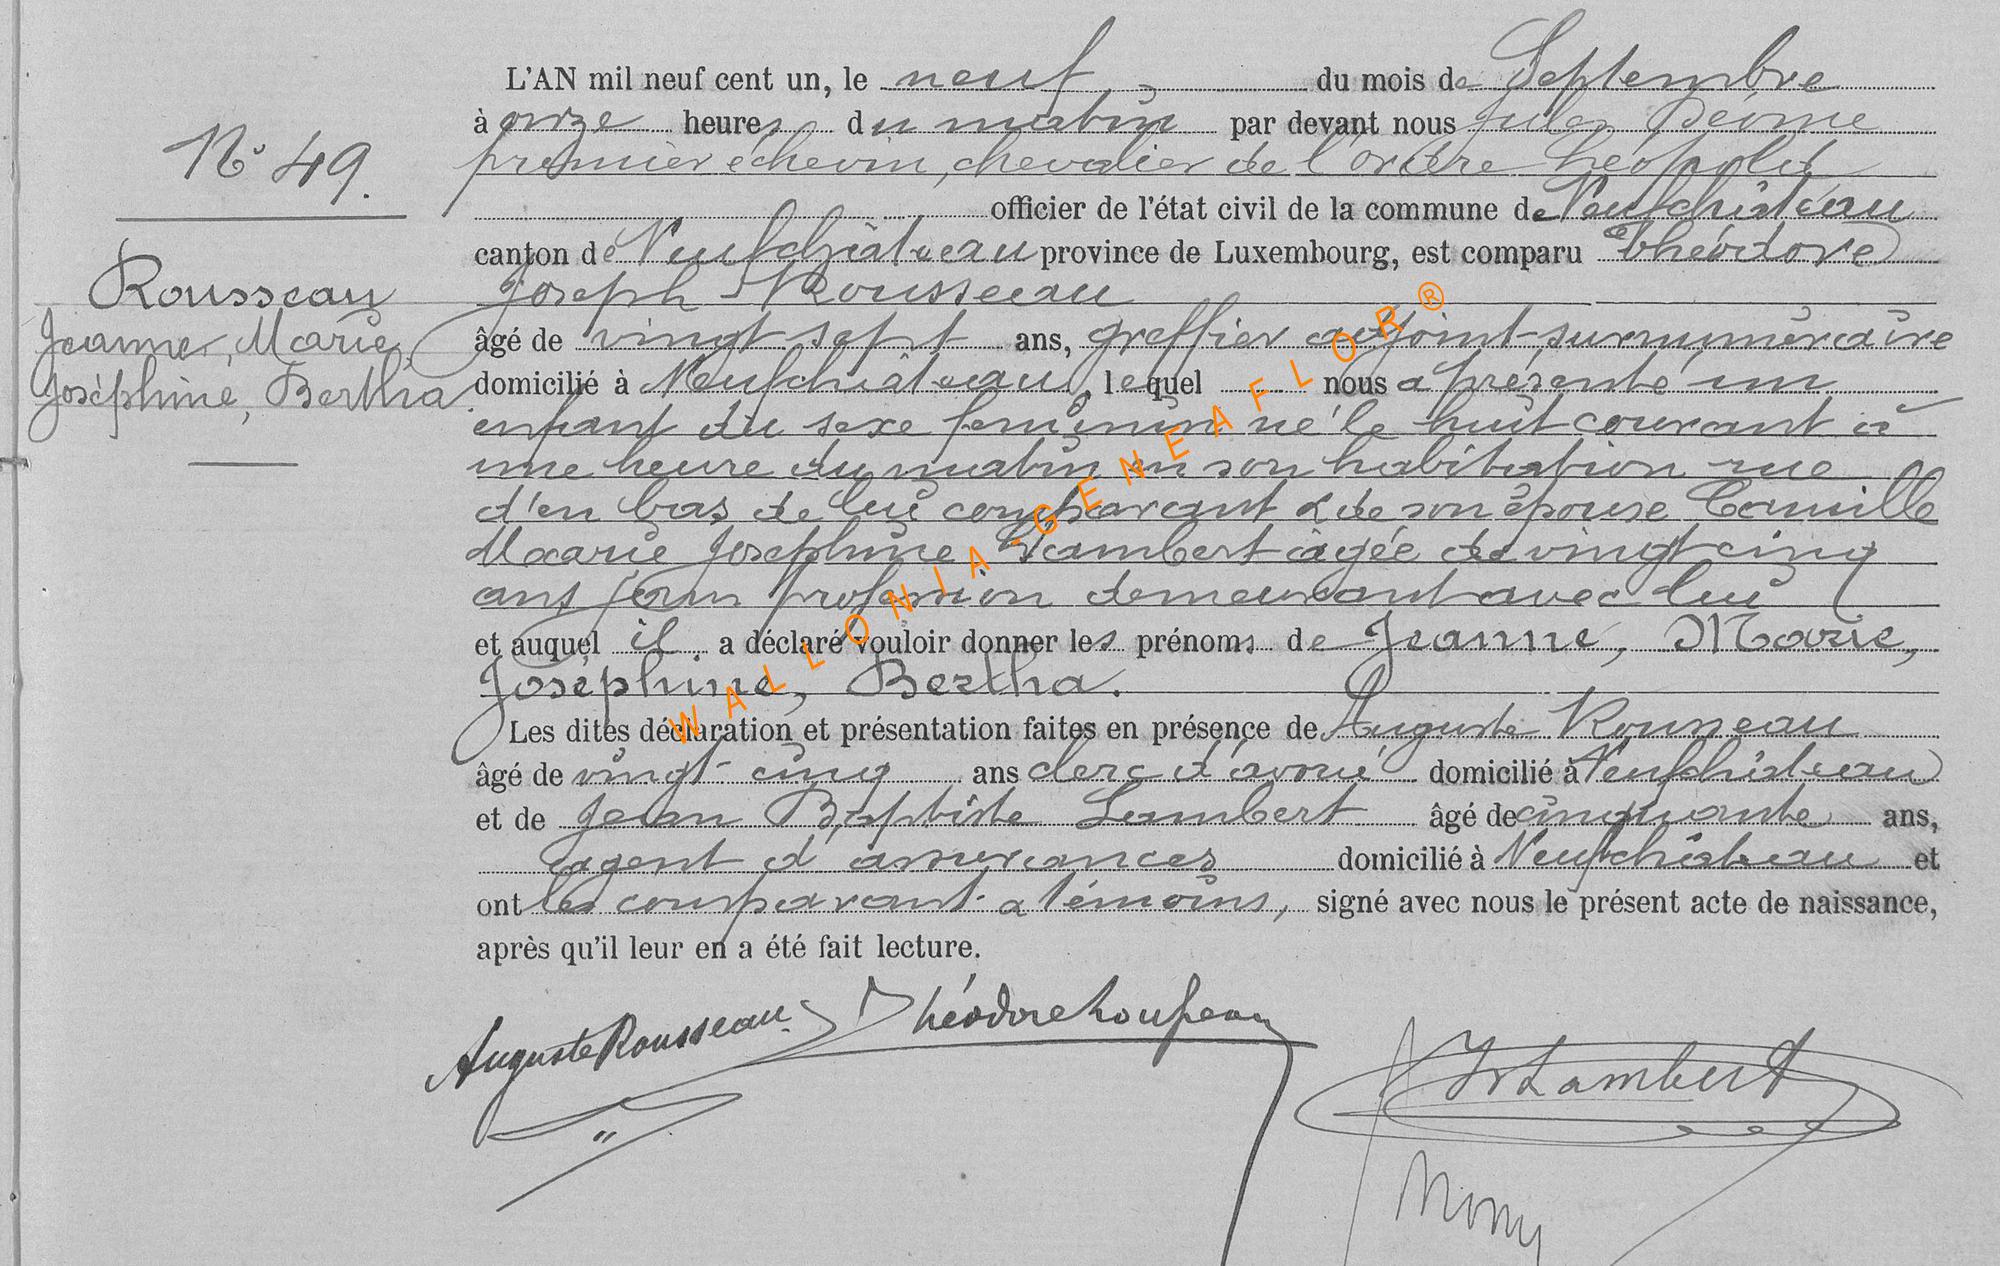 N° 49.
Rousseau
Jeanne, Marie,
Joséphine, Bertha
L'AN mil neuf cent un, le neuf du mois de Septembre
à onze heures du matin par devant nous Jules
premier échevin, chevalier de l'ordre Léopold
officier de l'état civil de la commune de Neufchâteau
canton de Neufchâteau province de Luxembourg, est comparu Théodore
Joseph Rousseau
âgé de vingt sept ans, greffier adjoint surnuméraire
domicilié à Neufchâteau, lequel nous a présenté un
enfant du sexe féminin né le huit courant à
une heure du matin en son habitation rue
d'en bas de lui comparant & de son épouse Camille
Marie Joséphine Lambert âgée de vingt cinq
ans sans profession demeurant avec lui
et auquel il a déclaré vouloir donner les prénoms de Jeanne, Marie,
Joséphine, Bertha.
Les dites déclaration et présentation faites en présence de Auguste Rousseau
âgé de vingt cinq ans clerc d'avoué domicilié à Neufchâteau
et de Jean Baptiste Lambert âgé de cinquante ans,
agent d'assurances domicilié à Neufchâteau et
ont les comparant & témoins, signé avec nous le présent acte de naissance,
après qu'il leur en a été fait lecture.
Auguste Rousseau Théodore Rousseau
Lambert
WALLONIA-GENEAFLOR®